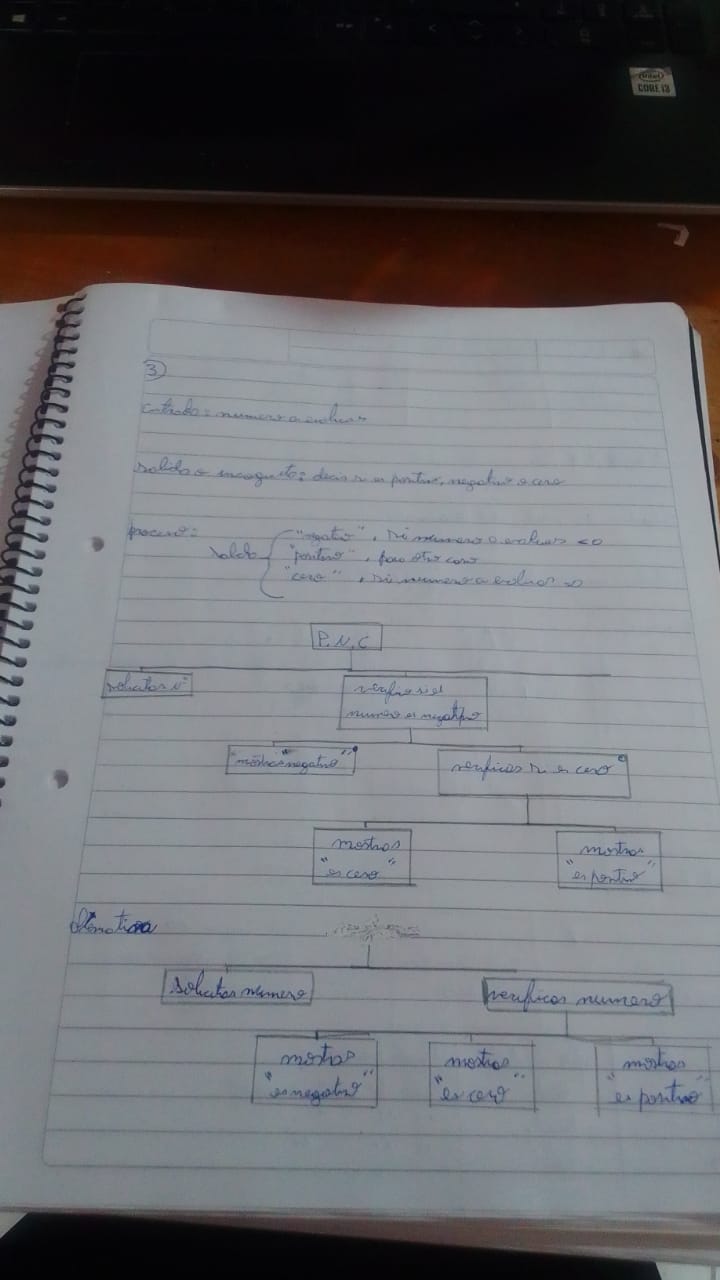 intel
CORE i3
3
entrada: numero a evaluar
salida o incognita: decir si es positivo, negativo o cero
proceso:
"negativo", si numero a evaluar <0
salida "positivo", para otro caso
"cero", si numero a evaluar =0
P.N.C
solicitar nº
verificar si el
numero es negativo
"mostrar negativo"
verificar si es cero
mostrar
"es cero"
mostrar
"es positivo"
alternativa
solicitar numero
verificar numero
mostrar
"es negativo"
mostrar
"es cero"
mostrar
"es positivo"